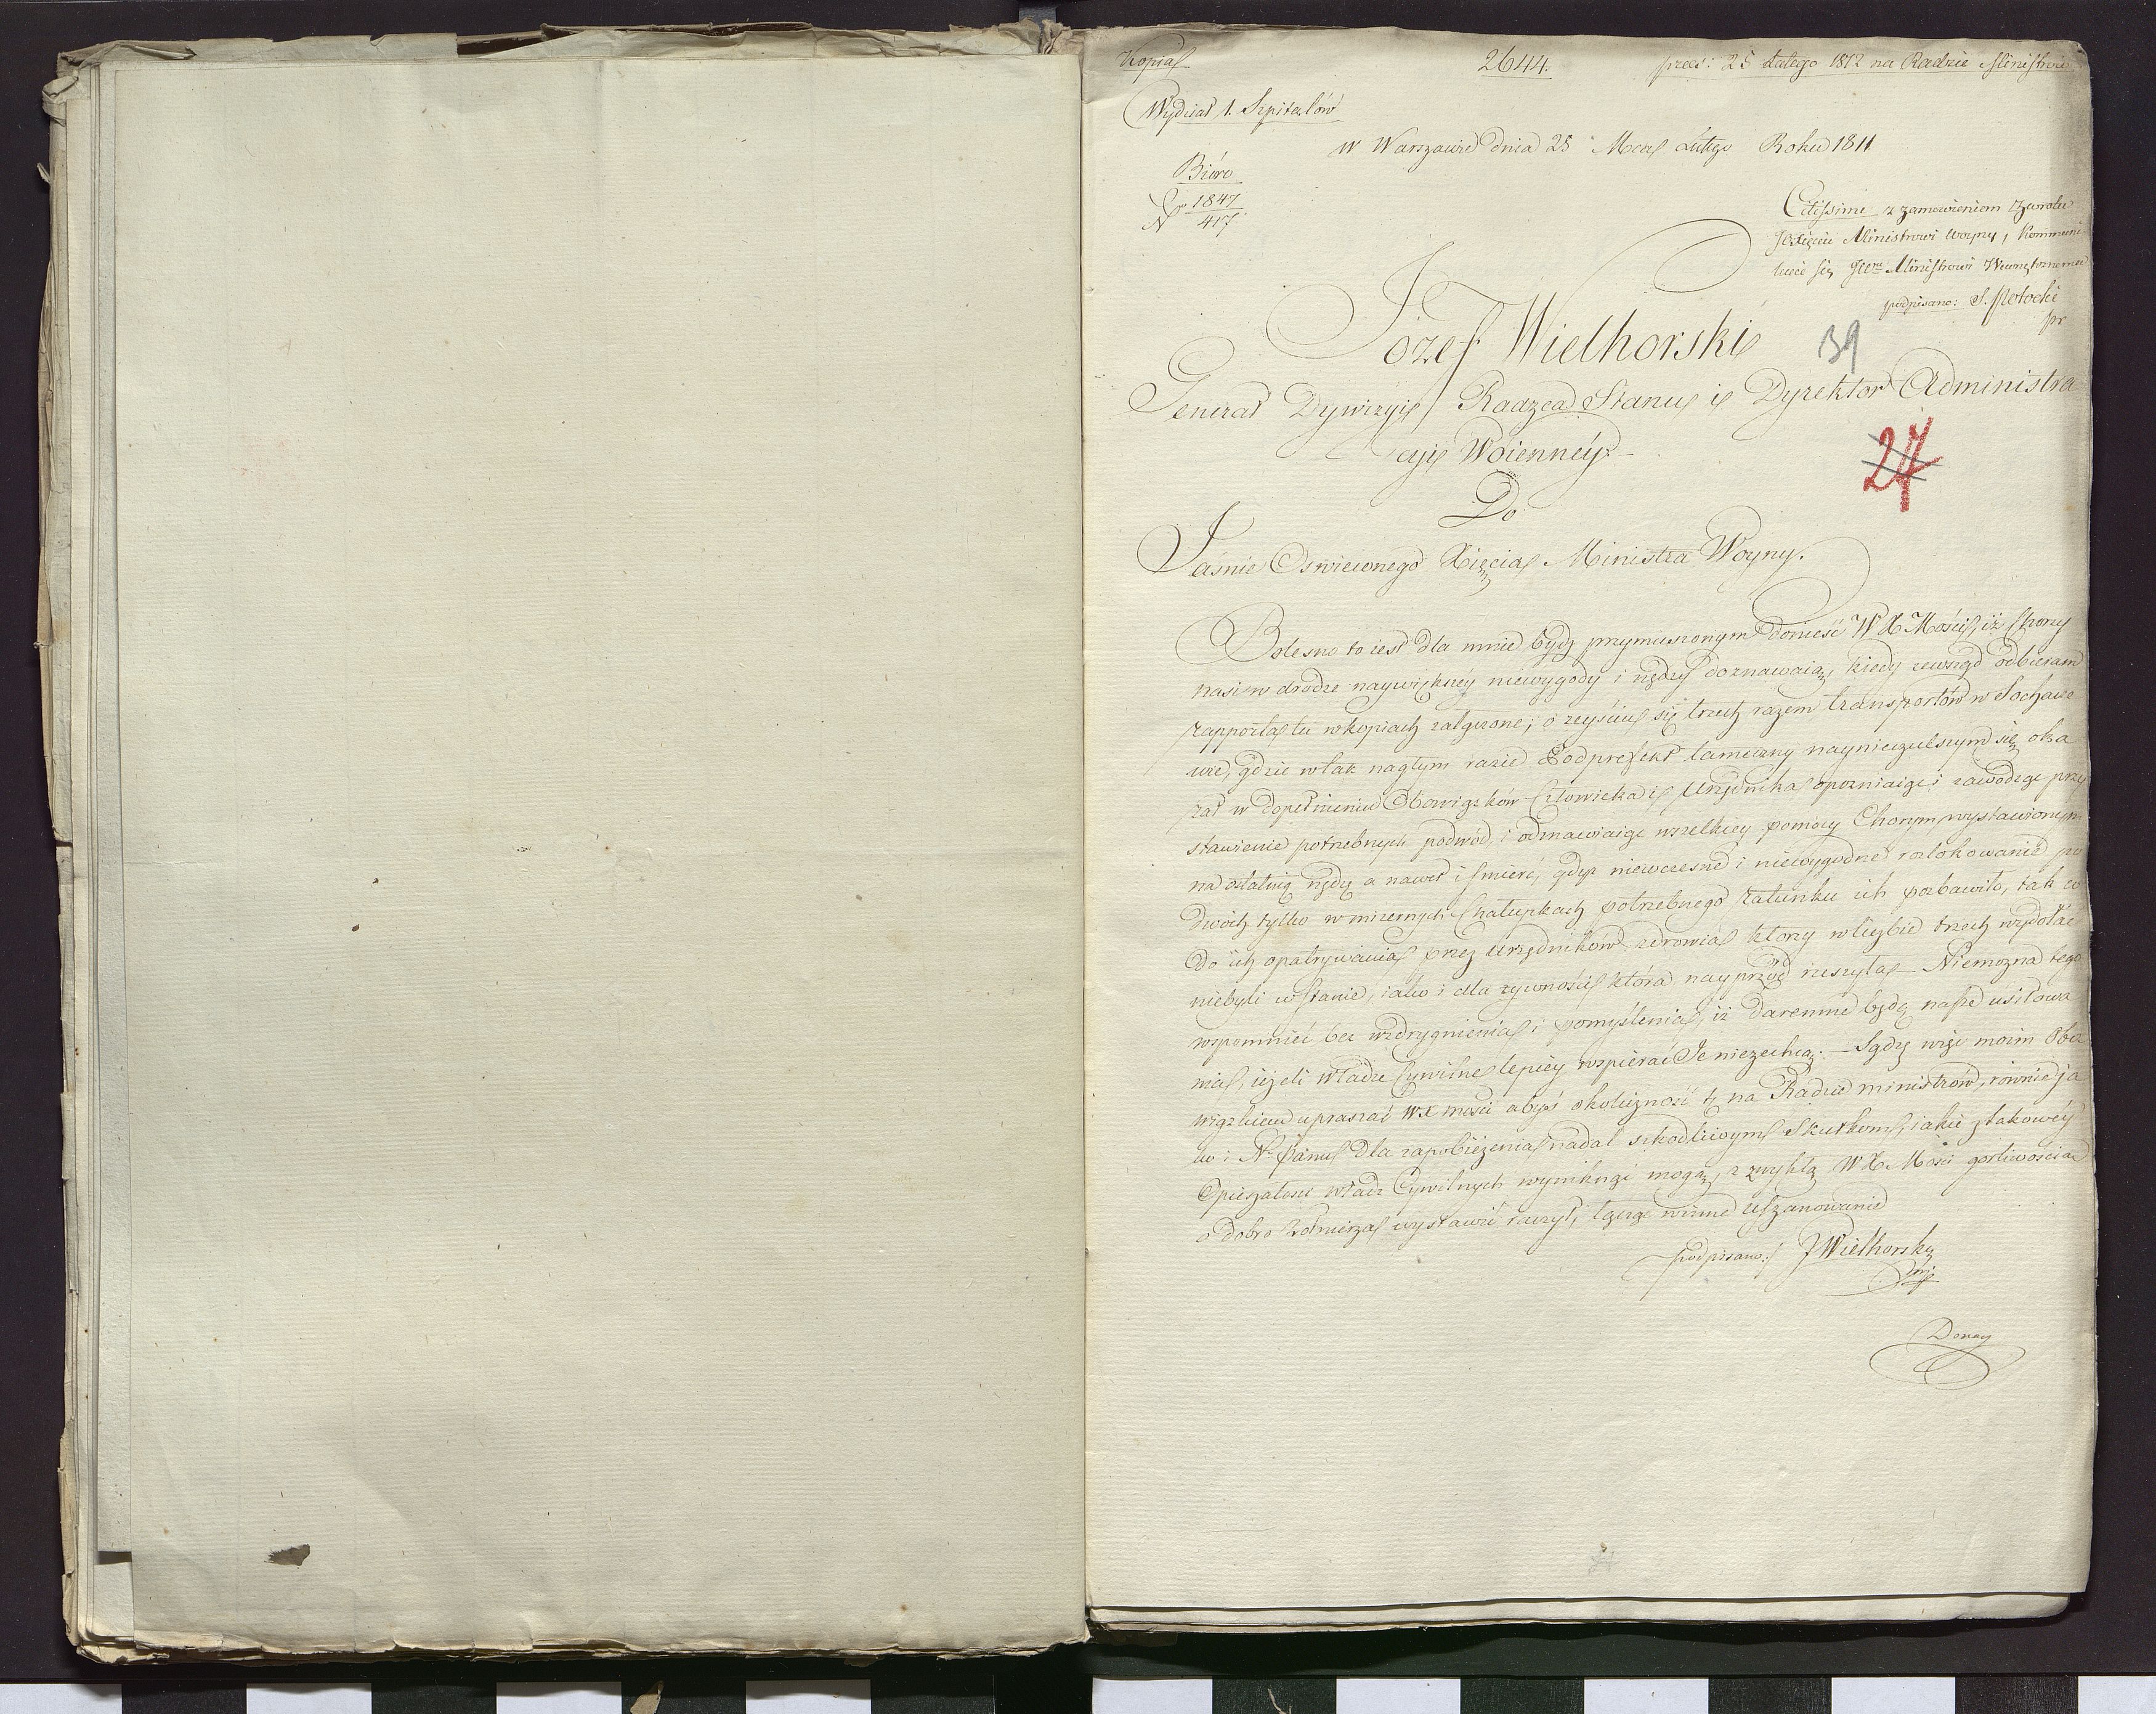 Kopia
2644.
prees: 25 Lutego 1812 na Radzie Ministrów
Wydział 1. Szpitalów
w Warszawie dnia 25 Mca Lutego Roku 1811
Bióro
N 1847
417
Citissime z zamowieniem zwrotu
JO Xięciu Ministrowi Woyny, Kommuni-
kuie się JWmu Ministrowi Wewnętrznemu
podpisano: S. Potocki
pr
Józef Wielhorski
39
Generał Dywizyi, Radzca Stanu i Dyrektor Administra
cyi Woienney.
27
Do
Jaśnie Oswieconego Xięcia Ministra Woyny.
Bolesno to iest dla mnie bydź przymuszonym donieść W X Mości, iż Chorzy
nasi w drodze naywiększey niewygody i nędzy doznawaią, kiedy zewsząd odbieram
rapporta tu w kopiach załączone; o zeyściu się trzech razem transportów w Sochacze
wie, gdzie w tak nagłym razie Podprefekt tameczny naynieczulszym się oka
zał w dopełnieniu Obowiązków Człowieka i Urzędnika opozniaiąc i zawodząc przy
stawienie potrzebnych podwód, i odmawiaiąc wszelkiey pomocy Chorym, wystawionym
na ostatnią nędzę a nawet i smierć, gdyż niewczesne i niewygodne rozlokowanie po
dwóch tylko w mizernych Chałupkach potrzebnego ratunku ich pozbawiło, tak co
do ich opatrywania przez Urzędników zdrowia ktorzy w liczbie trzech wydołać
niebyli w stanie, iako i dla zywności która nayprzód ruszyła – Niemozna tego
wspomnieć bez wzdrygnienia i pomyślenia, iż daremne będą nasze usiłowa
nia, ieżeli władze Cywilne lepiey wspierać Je niezechcą. – Sądzę więc moim Obo
wiązkiem upraszać WX mości abyś okoliczność tę na Radzie ministrów, równie ja
ko i Nu Panu dla zapobieżenia nadal szkodliwym Skutkom, iakie z takowéy
Opieszałości władz Cywilnych wyniknąć mogą, z zwykłą W X Mości gorliwością
o dobro Żołnierza wystawić raczył, łącząc winne Uszanowanie
podpisano: J Wielhorski
mp
Donay